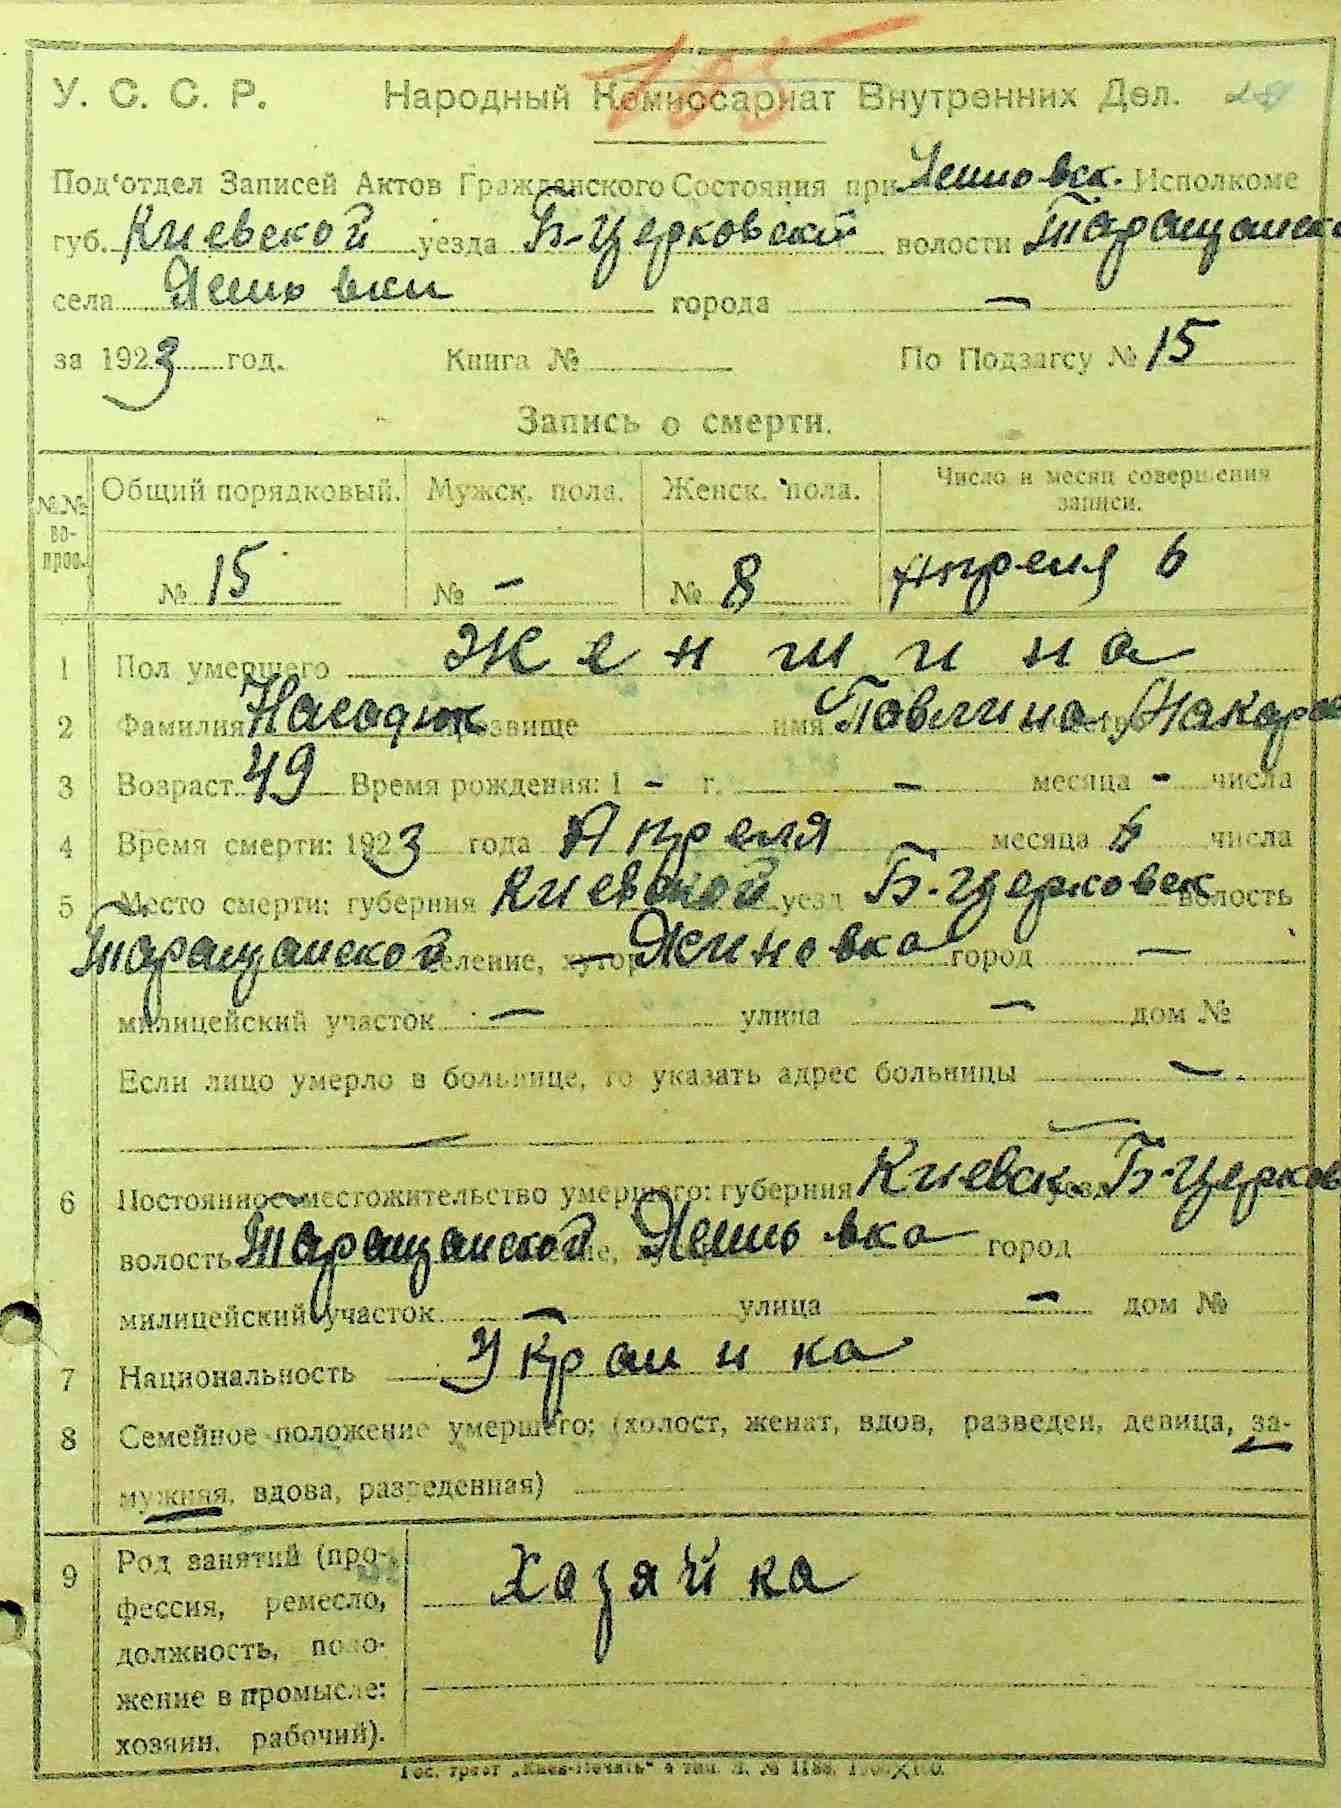 105
У. С. С. Р. Народный Комиссариат Внутренних Дел. 28
Под'отдел Записей Актов Гражданского Состояния при Лешновск. Исполкоме
губ. Киевской уезда Б-Церковской волости Таращанск
села города —
за 1923 год. Книга № По Подзагсу № 15
Запись о смерти.
№№ вопрос. Общий порядковый. Мужск. пола. Женск. пола. Число и месяц совершения записи.
№ 15 № - № 8 Апреля 6
1 Пол умершего Женшина
2 Фамилия прозвище имя Павлина Макаров
3 Возраст 49 Время рождения: 1 - г. - месяца - числа
4 Время смерти: 1923 года Апреля месяца 6 числа
5 Место смерти: губерния Киевской уезд Б-Церковск волость
Таращанской селение, хутор город —
милицейский участок — улица — дом №
Если лицо умерло в больнице, то указать адрес больницы —
6 Постоянное местожительство умершего: губерния Киевск. уезд Б-Церков
волость Таращанской город
милицейский участок — улица — дом №
7 Национальность Украинка
8 Семейное положение умершего; (холост, женат, вдов, разведен, девица, за-
мужняя, вдова, разведенная)
9 Род занятий (про-
фессия, ремесло,
должность, поло-
жение в промысле:
хозяин, рабочий).
Хазяйка
Гос. трест „Киев-Печать" 4 тип. З. № 1188.